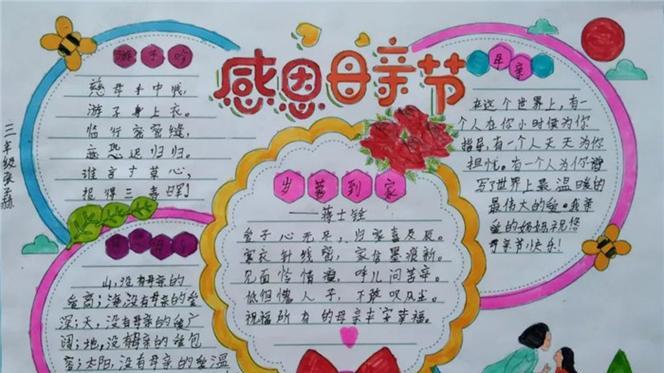 感恩母亲节
游子吟
慈母手中线,
游子身上衣。
临行密密缝,
意恐迟迟归。
谁言寸草心,
报得三春晖!
三年级
母亲
在这个世界上,有一
个人在你小时候为你
指导,有一个人天天为你
担忧。有一个人为你谱
写了世界上最温暖的
最伟大的爱。我亲
爱的妈妈祝您
母亲节快乐!
岁暮到家
——蒋士铨
爱子心无尽,归家喜及辰。
寒衣针线密,家信墨痕新。
见面怜清瘦,呼儿问苦辛。
低徊愧人子,不敢叹风尘。
祝福所有的母亲幸幸福。
山,没有母亲的
爱高;海,没有母亲的爱
深;天,没有母亲的爱广
阔;地,没有母亲的爱包
容;太阳,没有母亲的爱温